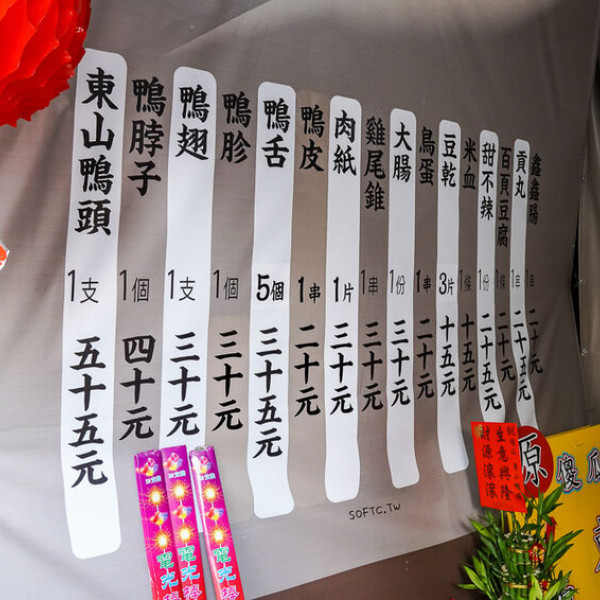 東山鴨頭 1支 五十五元
鴨脖子 1個 四十元
鴨翅 1支 三十元
鴨胗 1個 三十元
鴨舌 5個 三十五元
鴨皮 1串 二十元
肉紙 1片 三十元
雞尾錐 1串 三十元
大腸 1份 三十元
鳥蛋 1串 二十元
豆乾 3片 十五元
米血 1條 十五元
甜不辣 1份 二十五元
百頁豆腐 1條 二十元
貢丸 1串 二十五元
鑫鑫腸 1串 二十元
SOFTC.TW
生意興隆
財源滾滾
原
傻瓜
電光棒
電光棒
電光棒